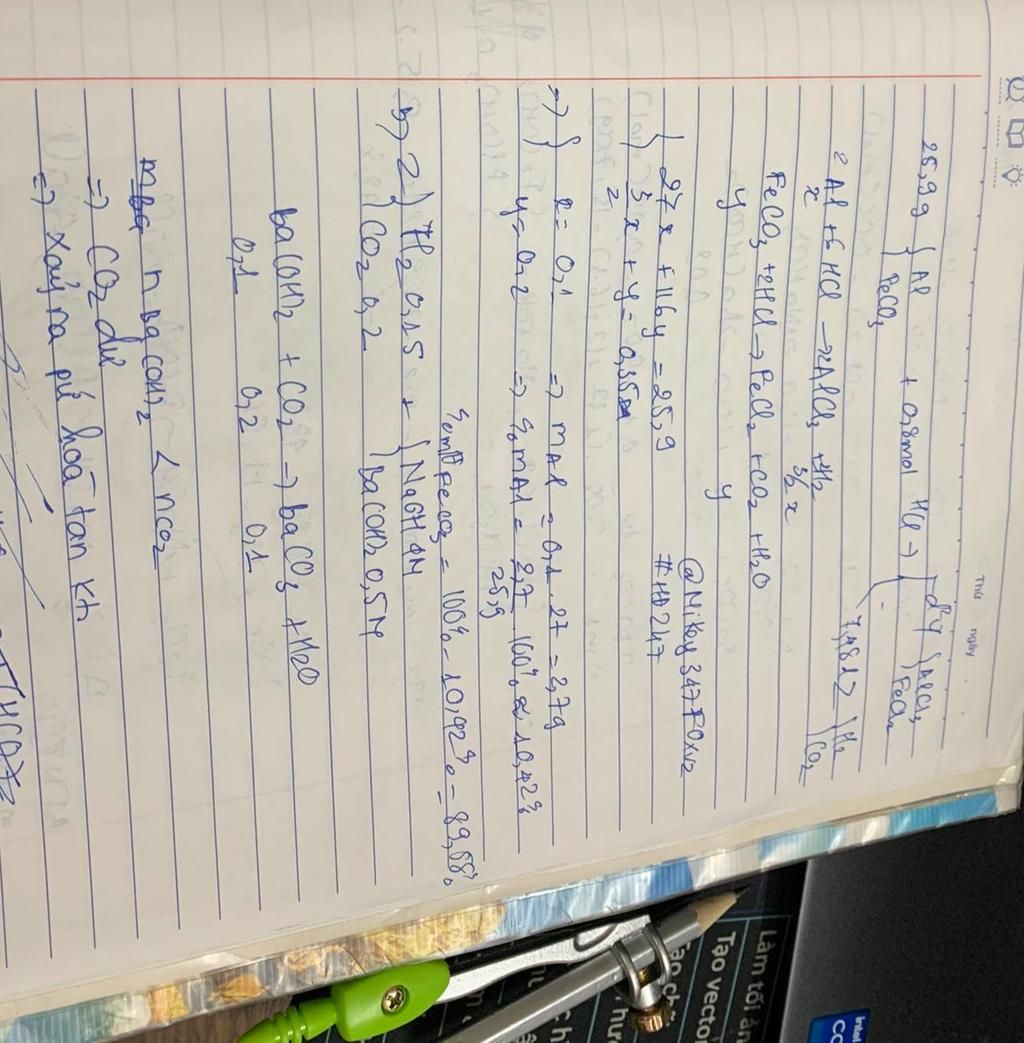 Thứ
ngày
25,9g { Al FeCO3 + 0,8mol HCl → { dd Y { AlCl3 FeCl2
7,481 Z { H2 CO2
2Al + 6HCl → 2AlCl3 + 3H2
x 3/2 x
FeCO3 + 2HCl → FeCl2 + CO2 + H2O
y y
{ 27x + 116y = 25,9
3/2 x + y = 0,35
@Mikey347FOxv2
#HD247
=> { x = 0,1 => mAl = 0,1 . 27 = 2,7g
y = 0,2 => %mAl = 2,7/25,9 100% ≈ 10,42%
%mFeCO3 = 100% - 10,42% = 89,58%
b) Z { H2 0,15 + { NaOH 1M
CO2 0,2 Ba(OH)2 0,5M
Ba(OH)2 + CO2 → BaCO3 + H2O
0,1 0,2 0,1
n Ba(OH)2 < nCO2
=> CO2 dư
=> Xảy ra pứ hoà tan kt
Làm tối ản
Tạo vecto
intel